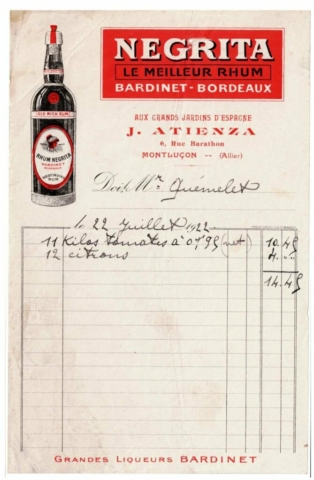 NEGRITA
LE MEILLEUR RHUM
BARDINET - BORDEAUX
OLD NICK RUM
RHUM NEGRITA
BARDINET
AUX GRANDS JARDINS D'ESPAGNE
J. ATIENZA
6, Rue Barathon
MONTLUÇON -- (Allier)
Doit Mr Quémelet
le 22 Juillet 1922
11 Kilos tomates à 0f95 (net) 10.45
12 citrons 4. "
14.45
GRANDES LIQUEURS BARDINET